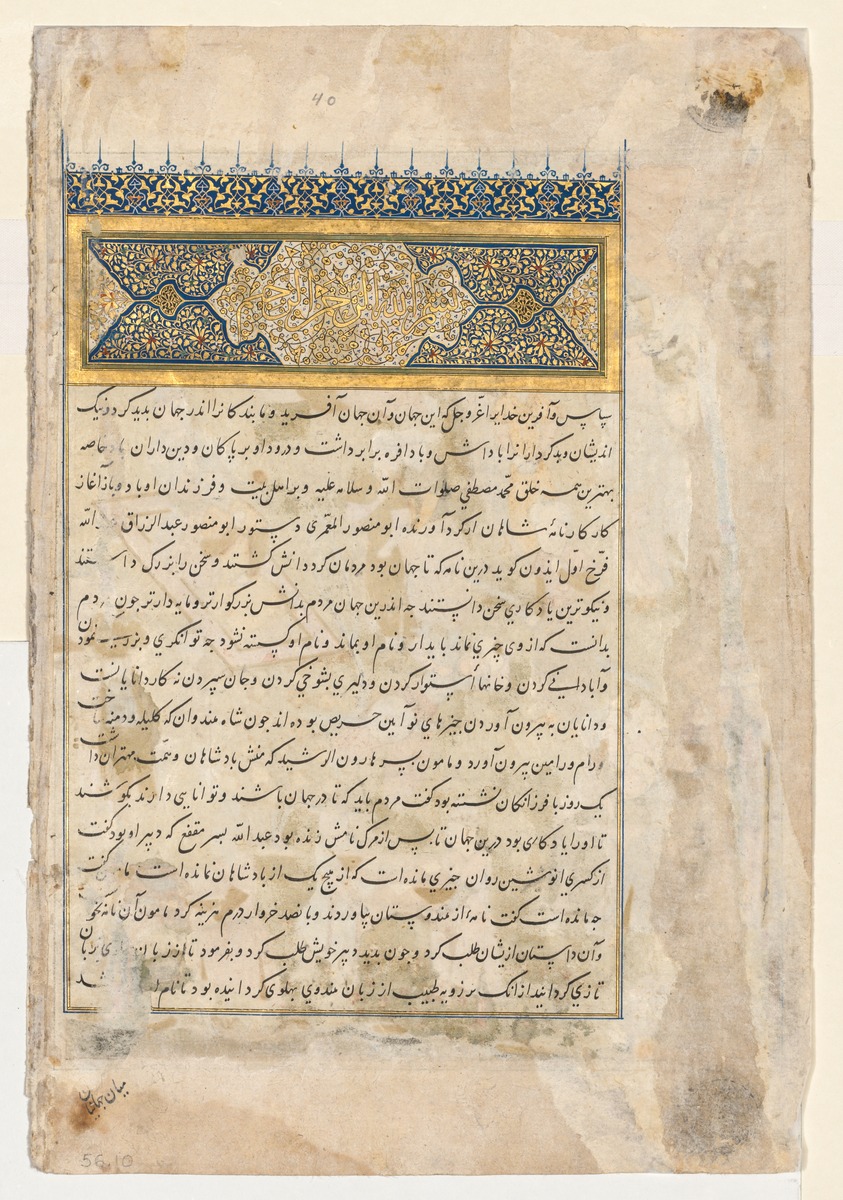 40
بسم الله الرحمن الرحیم
سپاس و آفرین خدایرا عزّ و جل که این جهان و آن جهان آفرید و ما بندکانرا اندر جهان بدید کرد و نیک
اندیشان و بدکردارانرا باداش و بادافره برابر داشت و درود او بر پاکان و دین داران باد خاصه
بهترین همه خلق محمّد مصطفی صلوات الله و سلامه علیه و بر اهل بیت و فرزندان او باد و باز آغاز
کار کارنامهٔ شاهان از کرد آورنده ابو منصور المعمری دستور ابو منصور عبد الرزاق الله
فرّخ اوّل ایذون کوید درین نامه که تا جهان بود مردمان کرد دانش کشتند و سخن را بزرک داشتند
و نیکوترین یادکاری سخن دانستند جه اندرین جهان مردم بدانش بزرکوارتر و مایه دارتر جون مردم
بدانست که از وی چیزی نماند بایدار و نام او بماند و نام او کسته نشود جه توانکری و نمودن
و آبادانی کردن و خانها استوار کردن و دلیری بشوخی کردن و جان سپردن نه کار دانایانست
و دانایان به بیرون آوردن جیزهای نو آیین حریص بوده اند جون شاه هندوان که کلیله و دمنه ساخت
و رام و رامین بیرون آورد و مامون بسر هارون الرشید که منش بادشاهان و همّت مهتران داشت
یک روز با فرزانکان نشسته بود کفت مردم باید که تا در جهان باشند و توانایی دارند بکوشند
تا او را یادکاری بود درین جهان تا بس از مرک نامش زنده بود عبد الله بسر مقفع که دبیر او بود کفت
از کسری انوشین روان جیزی مانده است که از هیچ یک از بادشاهان نمانده است کفت
جه مانده است کفت نامهٔ از هندوستان بیاوردند و بانصد خروار درم هزینه کرد مامون آن نامه بخواند
و آن داستان ازیشان طلب کرد و جون بدید دبیر خویش طلب کرد و بفرمود تا از زبان بزبان
تازی کردانید از انک برزویه طبیب از زبان هندوی بهلوی کردانیده بود تا نام
میان جهانیان
56.10